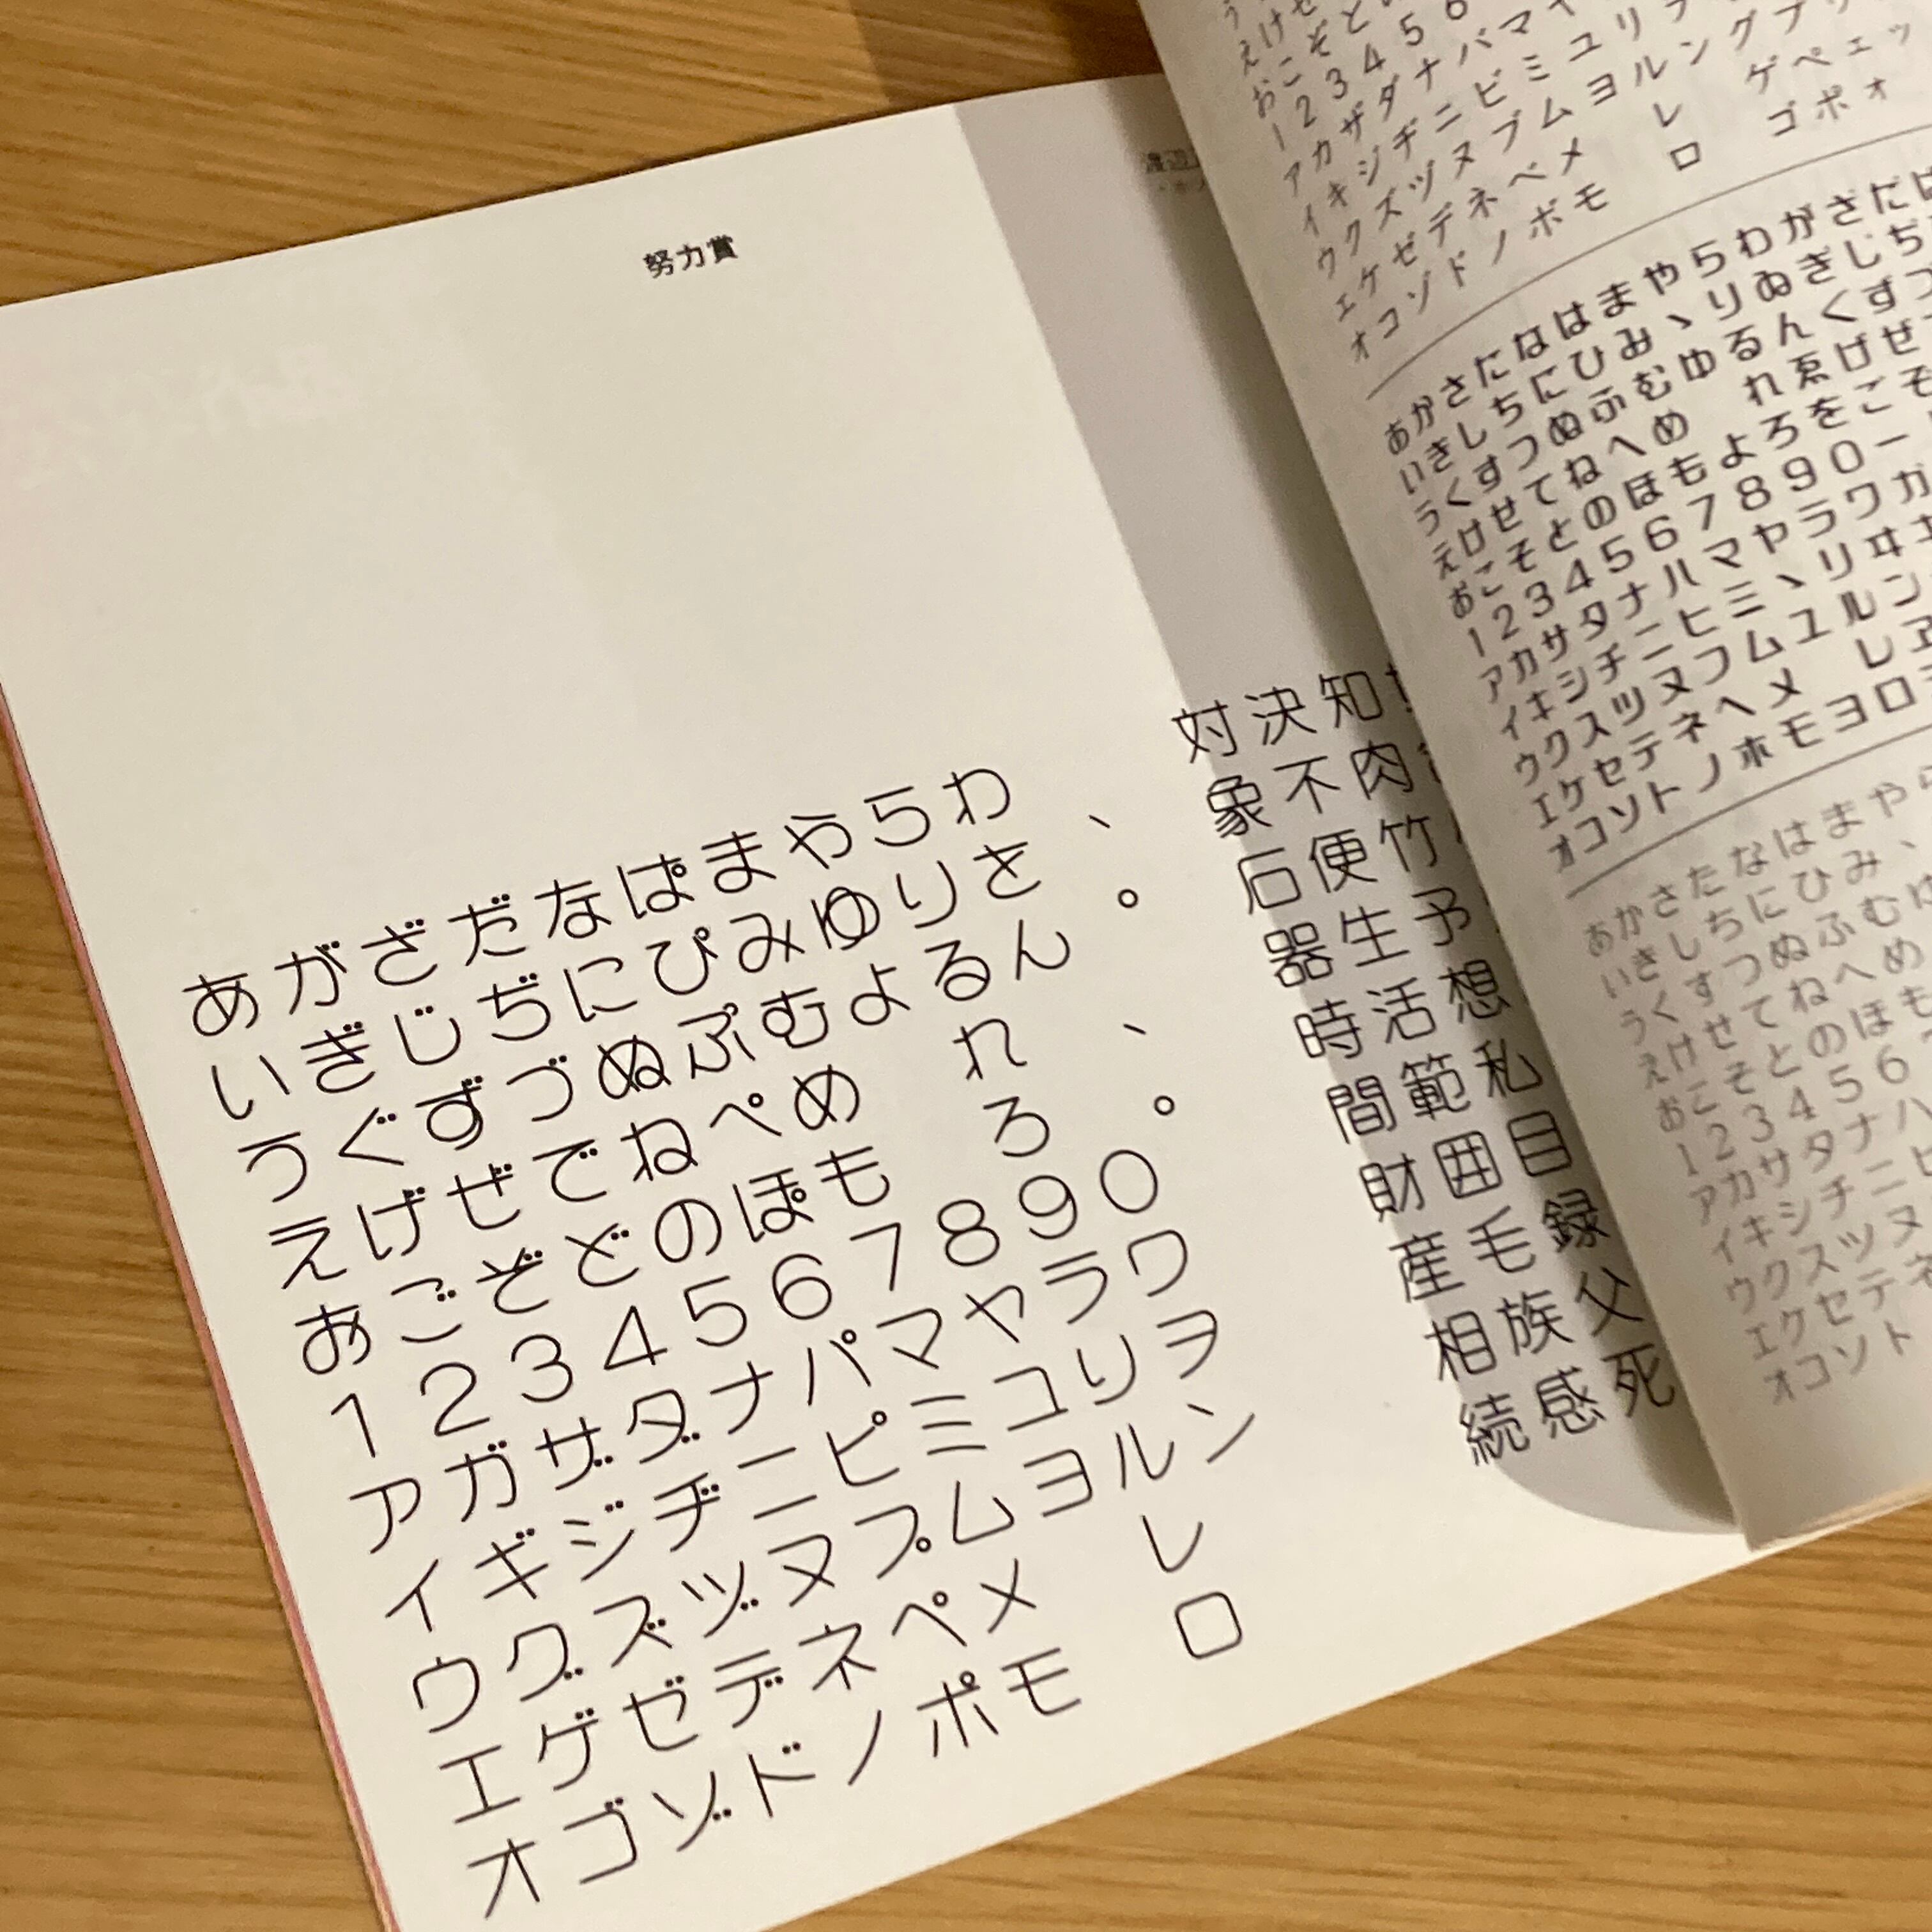 努力賞
あがざだなぱまやらわ、
いぎじぢにぴみゆりを。
うぐずづぬぷむよるん
えげぜでねぺめ れ、
おごぞどのぽも ろ。
1234567890
アガザダナパマヤラワ
イギジヂニピミユリヲ
ウグズヅヌプムヨルン
エゲゼデネペメ レ
オゴゾドノポモ ロ
対決知
象不肉
石便竹
器生予
時活想
間範私
財囲目
産毛録
相族父
続感死
123456
アカザダナバマ
イキジヂニビミユリ
ウクズヅヌブムヨルングプ
エケゼデネベメ レ ゲペェッ
オコゾドノボモ ロ ゴポォ
あかさたなはまやらわがざだ
いきしちにひみ、りゐぎじぢ
うくすつぬふむゆるんくず
えけせてねへめ れゑげぜ
おこそとのほもよろをこそ
1234567890ー
アカサタナハマヤラワガ
イキシチニヒミ、リヰ
ウクスツヌフムユルン
エケセテネヘメ レヱ
オコソトノホモヨロ
あかさたなはまやら
いきしちにひみ、
うくすつぬふむゆ
えけせてねへめ
おこそとのほも
123456
アカサタナハ
イキシチニヒ
ウクスツヌ
エケセテネ
オコソト